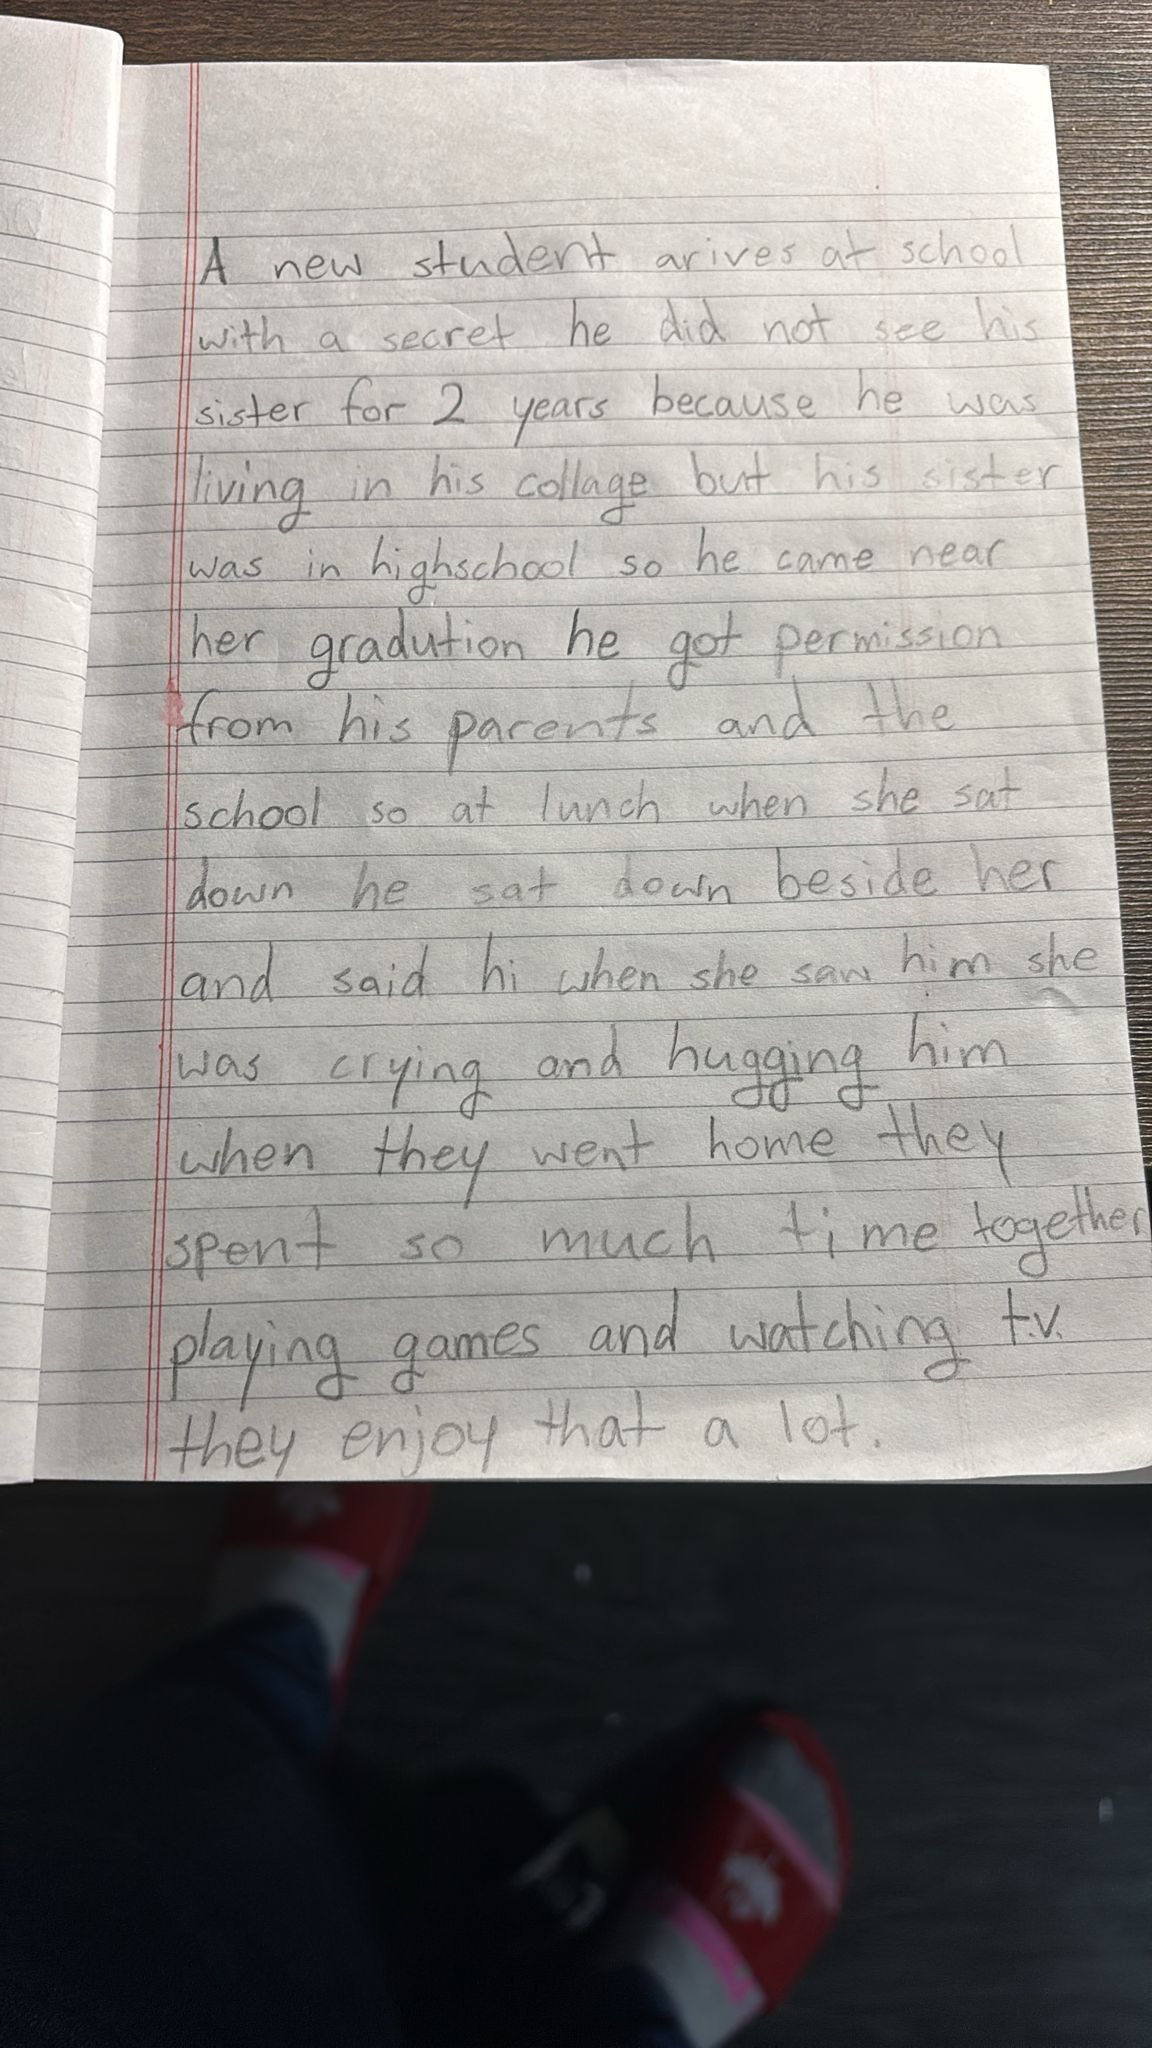 A new student arives at school
with a secret he did not see his
sister for 2 years because he was
living in his collage but his sister
was in highschool so he came near
her gradution he got permission
from his parents and the
school so at lunch when she sat
down he sat down beside her
and said hi when she saw him she
was crying and hugging him
when they went home they
spent so much time together
playing games and watching t.v.
they enjoy that a lot.